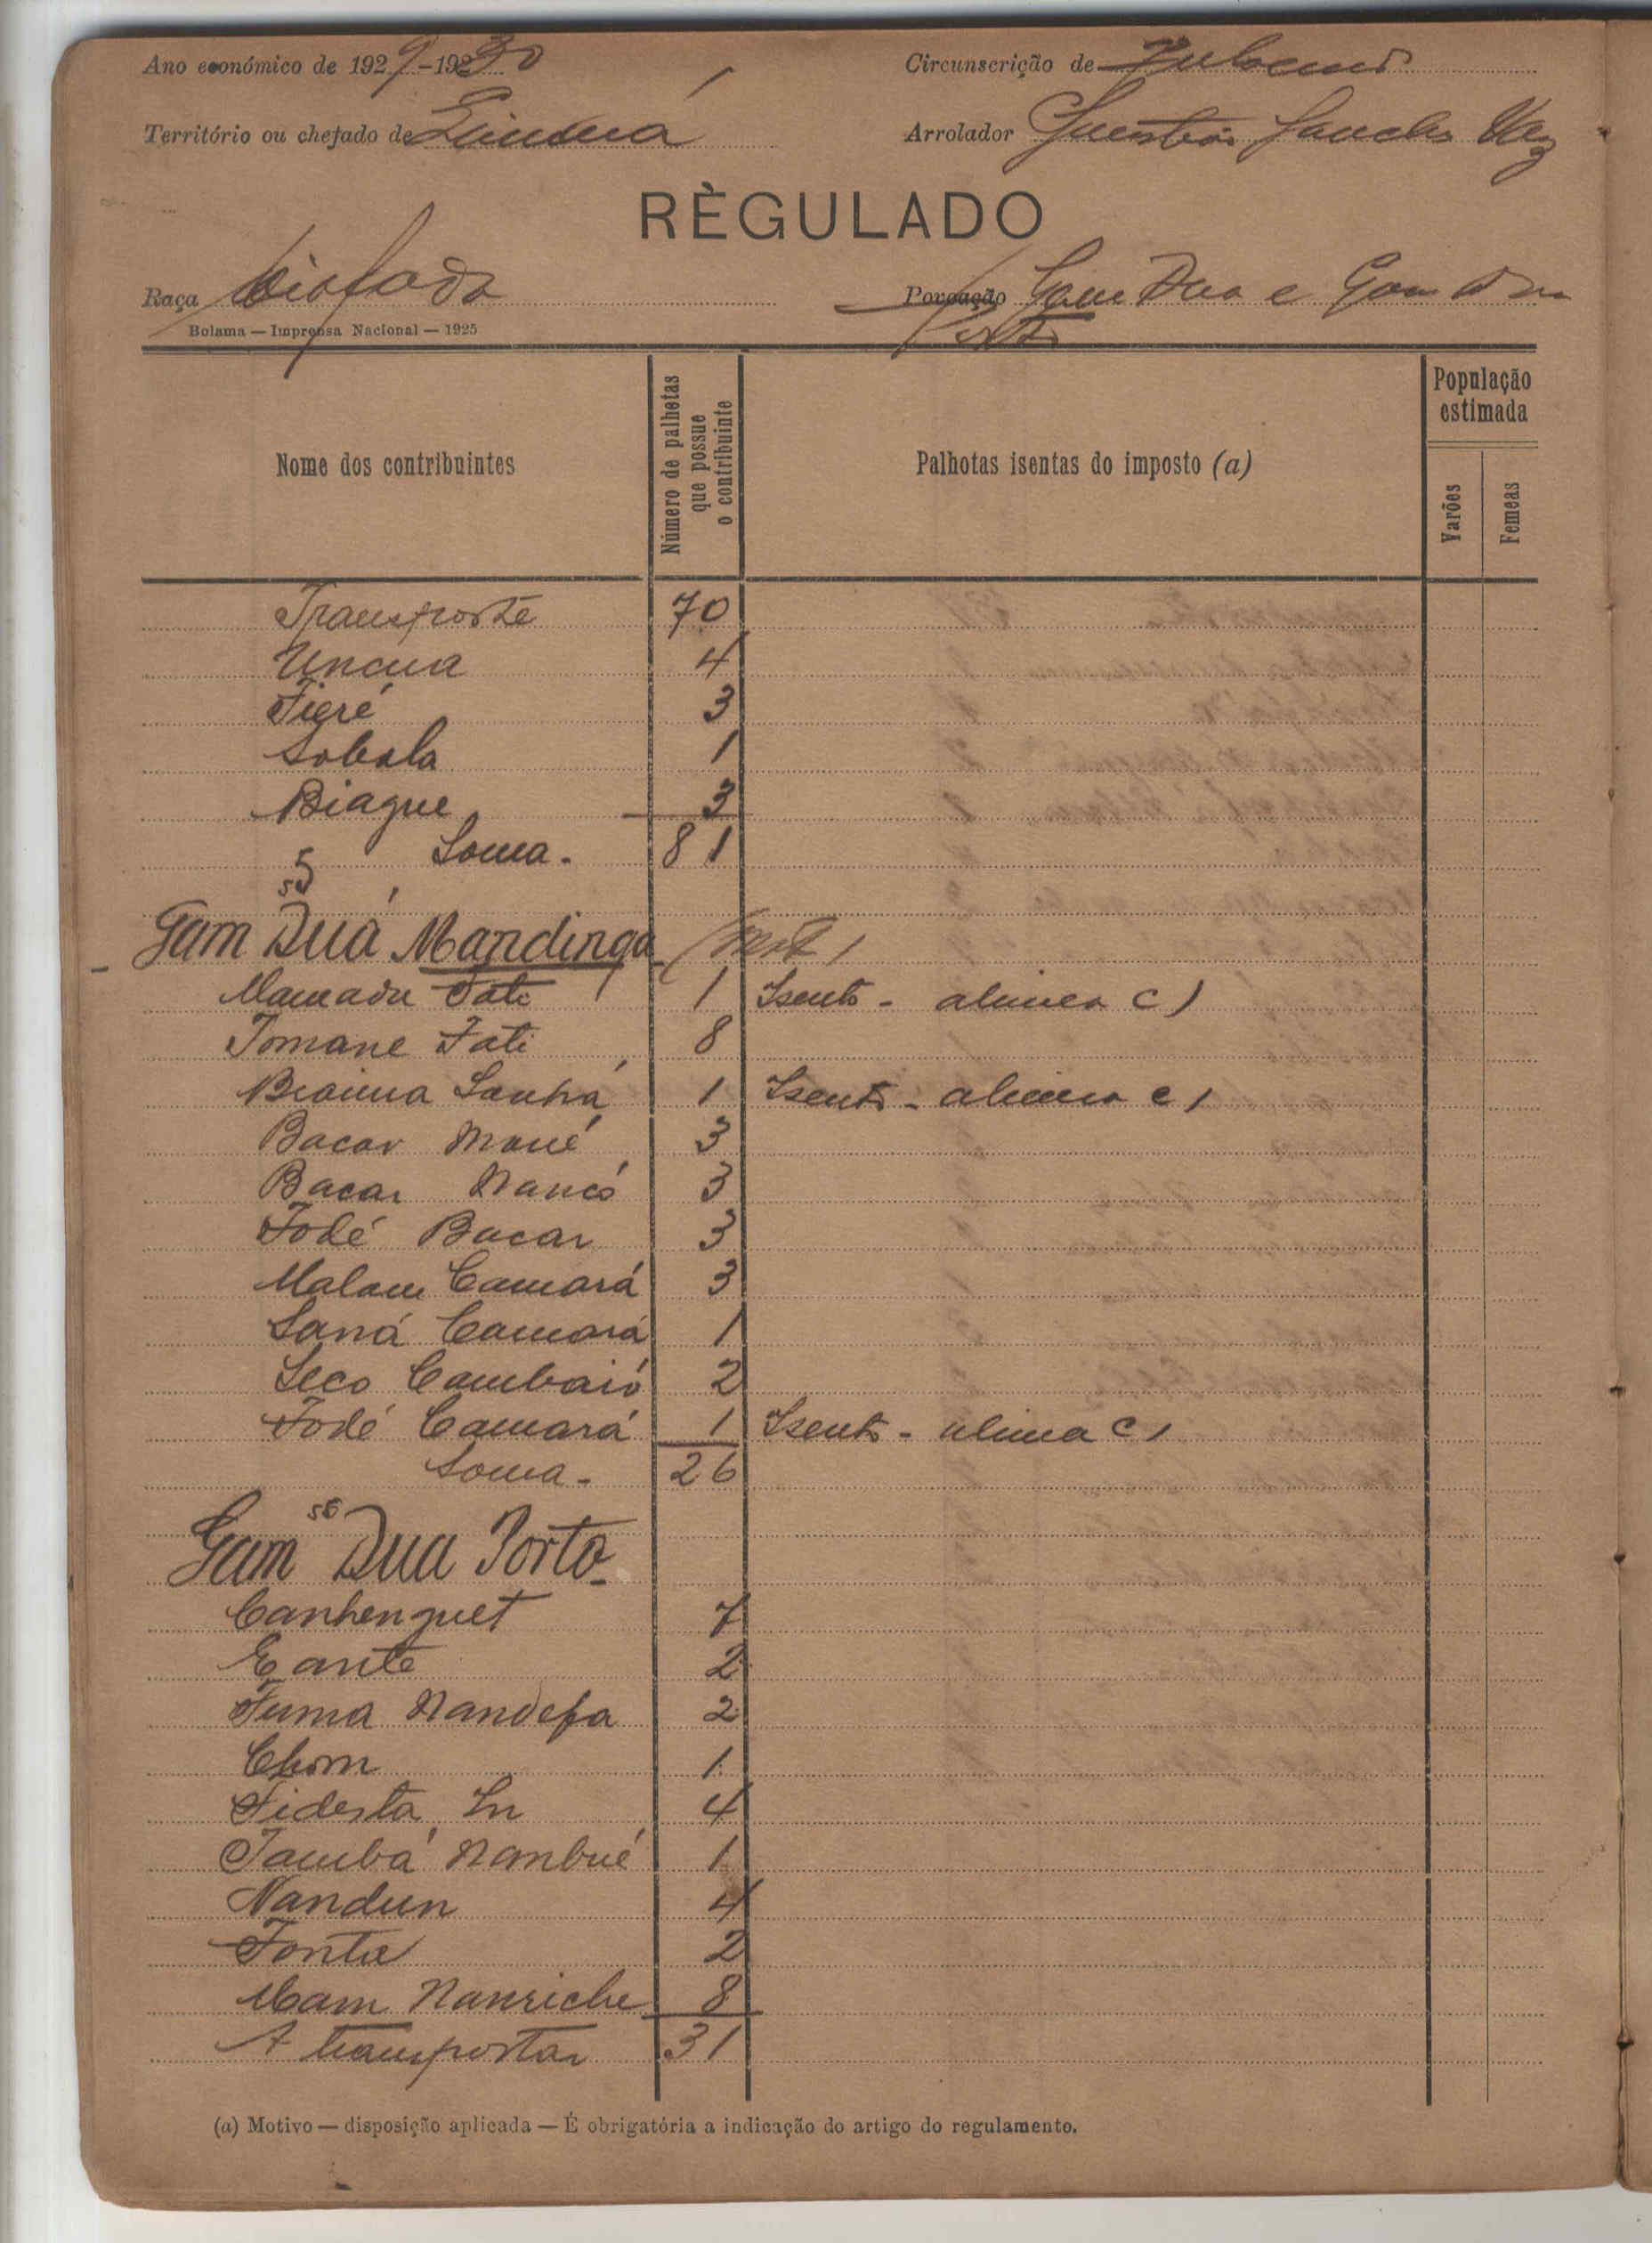 Ano económico de 1929-1930
Circunscrição de
Território ou chefado de
Arrolador Sanches Vaz
RÈGULADO
Raça biafada
Povoação Gam Dua e Gam Dua
Porto
Bolama — Imprensa Nacional — 1925
Nome dos contribuintes
Número de palhetas que possue o contribuinte
Palhotas isentas do imposto (a)
População estimada
Varões
Femeas
Transporte 70
Uncua 4
Tigré 3
Sobala 1
Biague 3
5 Soma - 81
55
Gam Duá Mandinga
Mamadu Fati 1 Isento - alinea c)
Tomane Fati 8
Braima Sanhá 1 Isento - alinea c)
Bacar Mané 3
Bacar Nancó 3
Fodé Bacar 3
Malam Camará 3
Saná Camará 1
Seco Cambaió 2
Fodé Camará 1 Isento - alinea c)
Soma - 26
56
Gam Dua Porto
Canhenguet 7
Eante 2
Fuma Nandefa 2
Chom 1
Fidesta In 4
Tambá Nambué 1
Nandun 4
Fonta 2
Mam Nanriche 8
A transportar 31
(a) Motivo — disposição aplicada — É obrigatória a indicação do artigo do regulamento.